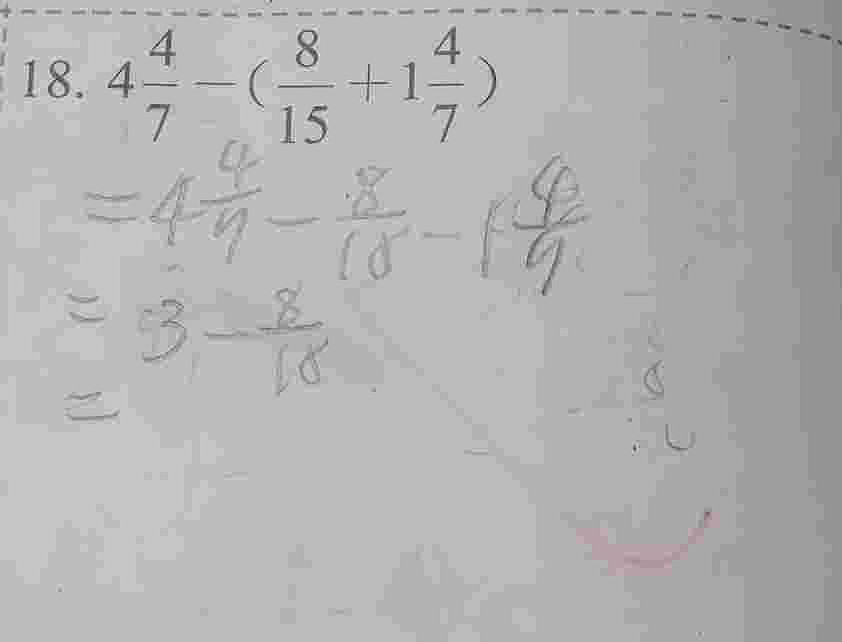 18. 4 4/7 - ( 8/15 + 1 4/7 )
= 4 4/7 - 8/15 - 1 4/7
= 3 - 8/15
=